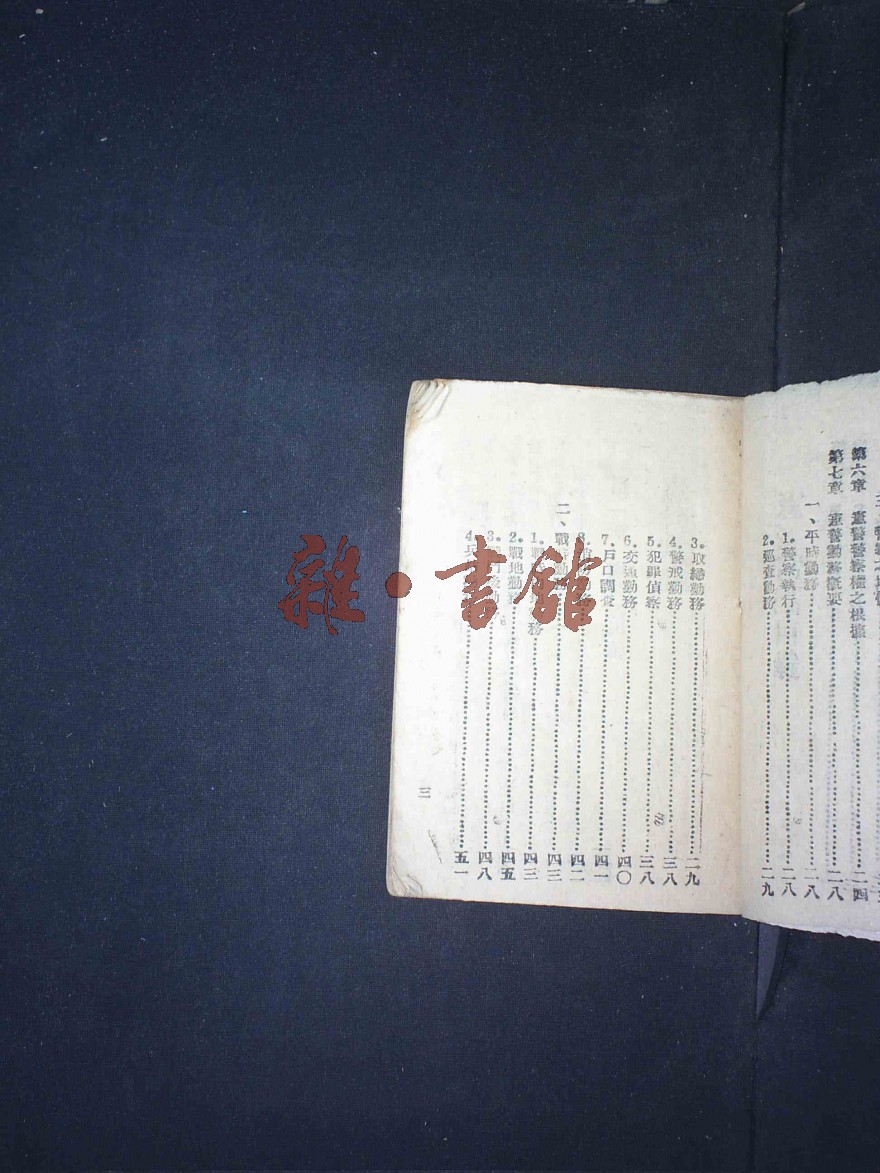 第六章 憲警警察權之根據……二四
第七章 憲警勤務概要……二八
一、平時勤務……二八
1.警察執行……二八
2.巡查勤務……二九
3.取締勤務……二九
4.警戒勤務……三八
5.犯罪偵察……三八
6.交通勤務……四〇
7.戶口調查……四一
8.……四二
二、戰……四三
1.……務……四三
2.戰地勤務……四五
3.……四八
4.兵……五一
三
雜·書館